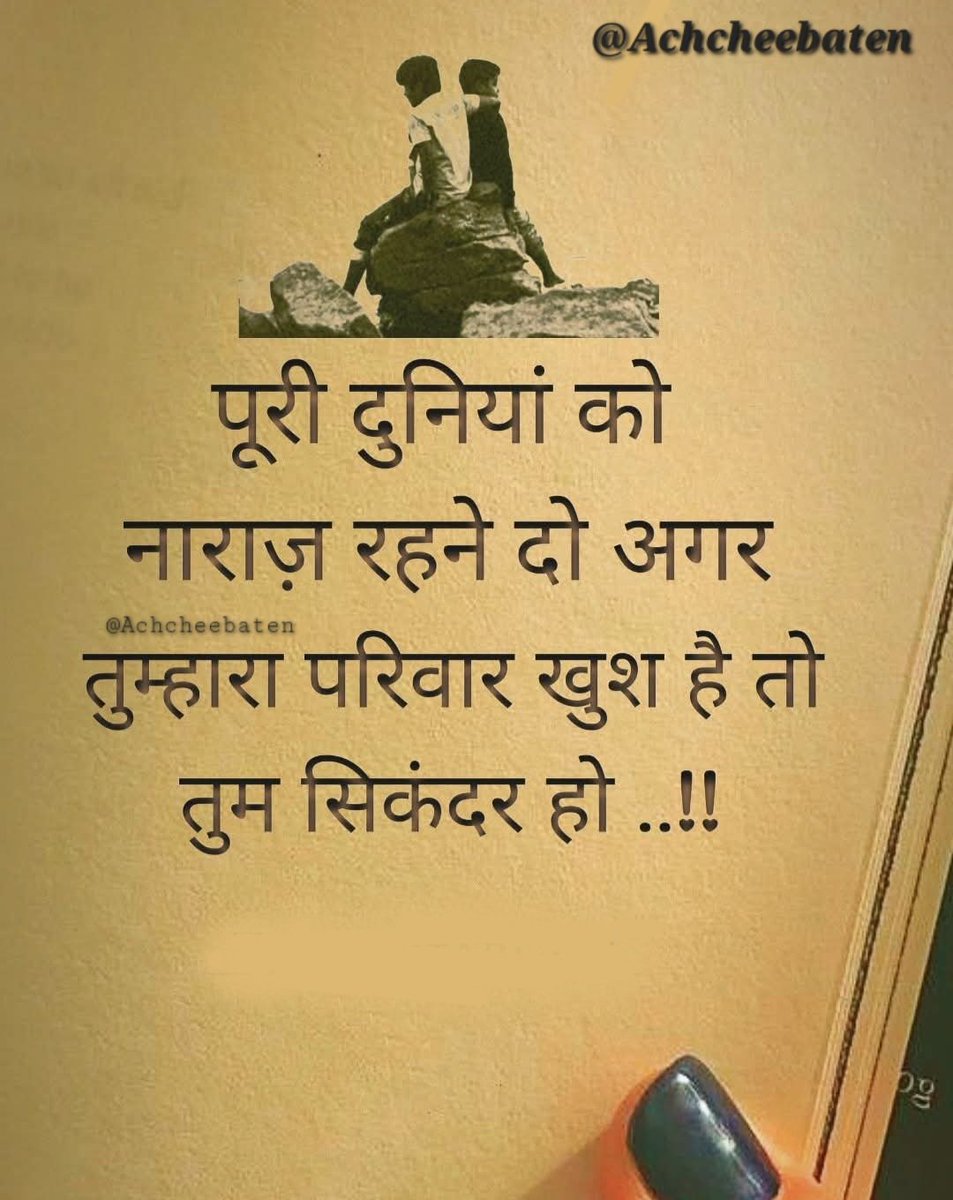 @Achcheebaten
पूरी दुनियां को
नाराज़ रहने दो अगर
@Achcheebaten
तुम्हारा परिवार खुश है तो
तुम सिकंदर हो ..!!
og